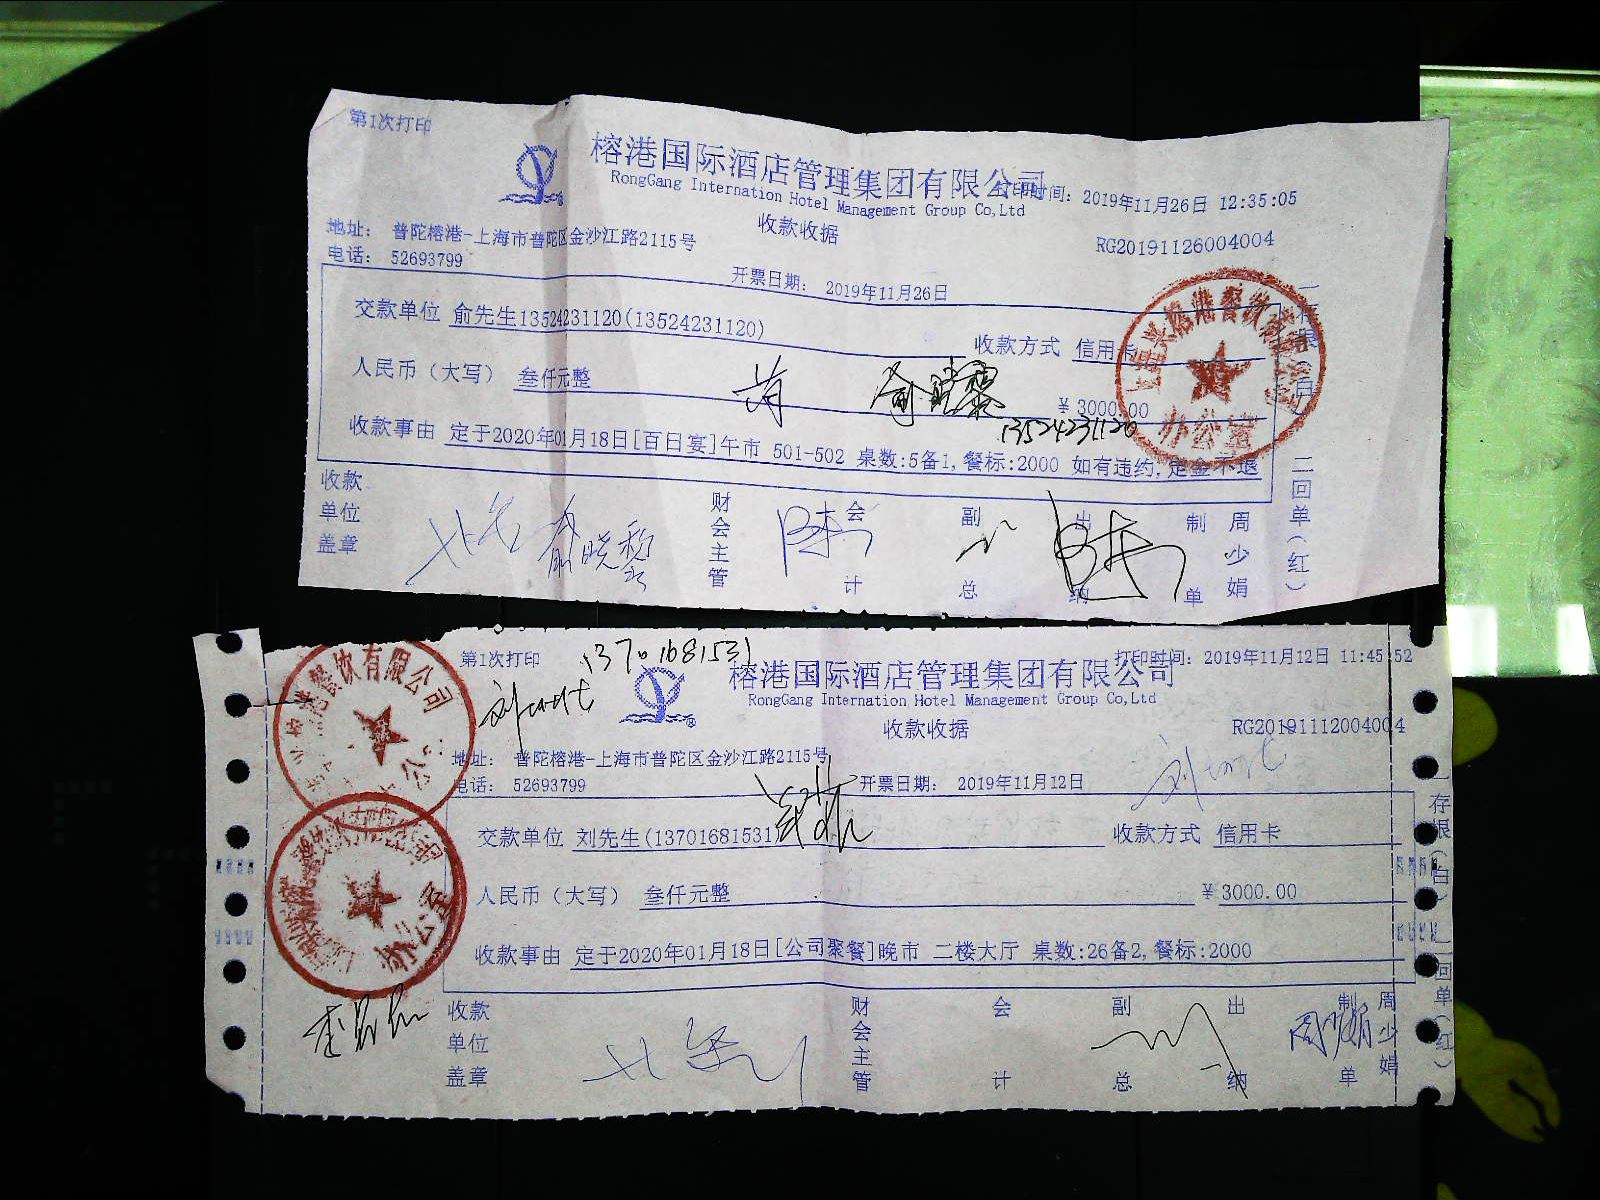 第1次打印
榕港国际酒店管理集团有限公司
打印时间: 2019年11月26日 12:35:05
RongGang Internation Hotel Management Group Co,Ltd
收款收据
RG20191126004004
地址: 普陀榕港-上海市普陀区金沙江路2115号
电话: 52693799
开票日期: 2019年11月26日
交款单位 俞先生13524231120(13524231120)
收款方式 信用卡
人民币(大写) 叁仟元整
¥3000.00
13524231120
收款事由 定于2020年01月18日[百日宴]午市 501-502 桌数:5备1,餐标:2000 如有违约,定金不退
办公室
收款单位盖章
财会主管
会计
副总
出纳
制单
周少娟
二回单(红)
第1次打印
13701681531
榕港国际酒店管理集团有限公司
打印时间: 2019年11月12日 11:45:52
RongGang Internation Hotel Management Group Co,Ltd
收款收据
RG20191112004004
地址: 普陀榕港-上海市普陀区金沙江路2115号
电话: 52693799
开票日期: 2019年11月12日
交款单位 刘先生(13701681531)
收款方式 信用卡
人民币(大写) 叁仟元整
¥3000.00
收款事由 定于2020年01月18日[公司聚餐]晚市 二楼大厅 桌数:26备2,餐标:2000
餐饮有限公司
办公室
收款单位盖章
财会主管
会计
副总
出纳
制单
周少娟
周少娟